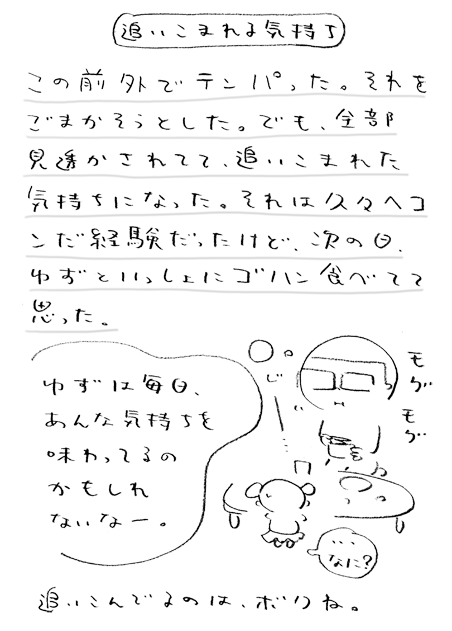 追いこまれる気持ち
この前外でテンパった。それを
ごまかそうとした。でも、全部
見透かされてて、追いこまれた
気持ちになった。それは久々ヘコ
ンだ経験だったけど、次の日、
ゆずといっしょにゴハン食べてて
思った。
ゆずは毎日、
あんな気持ちを
味わってるの
かもしれ
ないなー。
じーっ
モグ
モグ
...
なに?
追いこんでるのは、ボクね。